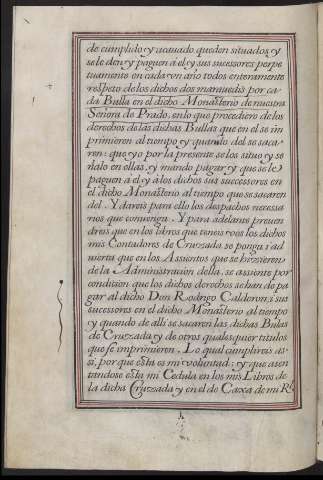 de cumplido y acauado queden situados, y
se le den y paguen á el, y sus sucessores perpe
tuamente en cada vn año todos enteramente
respeto de los dichos dos marauedis por ca-
da Bulla en el dicho Monasterio de nuestra
Señora de Prado, en lo que procediere de los
derechos de las dichas Bullas que en el se im
primieren al tiempo y quando del se saca-
ren: que yo por la presente se los situo y se
ñalo en ellas, y mando pagar, y que se le
paguen á el y á los dichos sus successores en
el dicho Monasterio al tiempo que se sacaren
del. Y dareis para ello los despachos necessa
rios que conuenga. Y para adelante preuen
dreis que en los libros que teneis vos los dichos
mis Contadores de Cruzada se ponga i ad
uierta que en los Assientos que se hizieren
de la Administracion della, se assiente por
condicion que los dichos derechos se han de pa
gar al dicho Don Rodrigo Calderon, i sus
sucessores en el dicho Monasterio al tiempo
y quando de alli se sacaren las dichas Bulas
de Cruzada y de otros qualesquier titulos
que se imprimieren. Lo qual cumplireis as-
si, por que esta es mi voluntad; y que asen
tandose esta mi Cedula en los mis Libros de
la dicha Cruzada y en el de Caxa de mi Rl